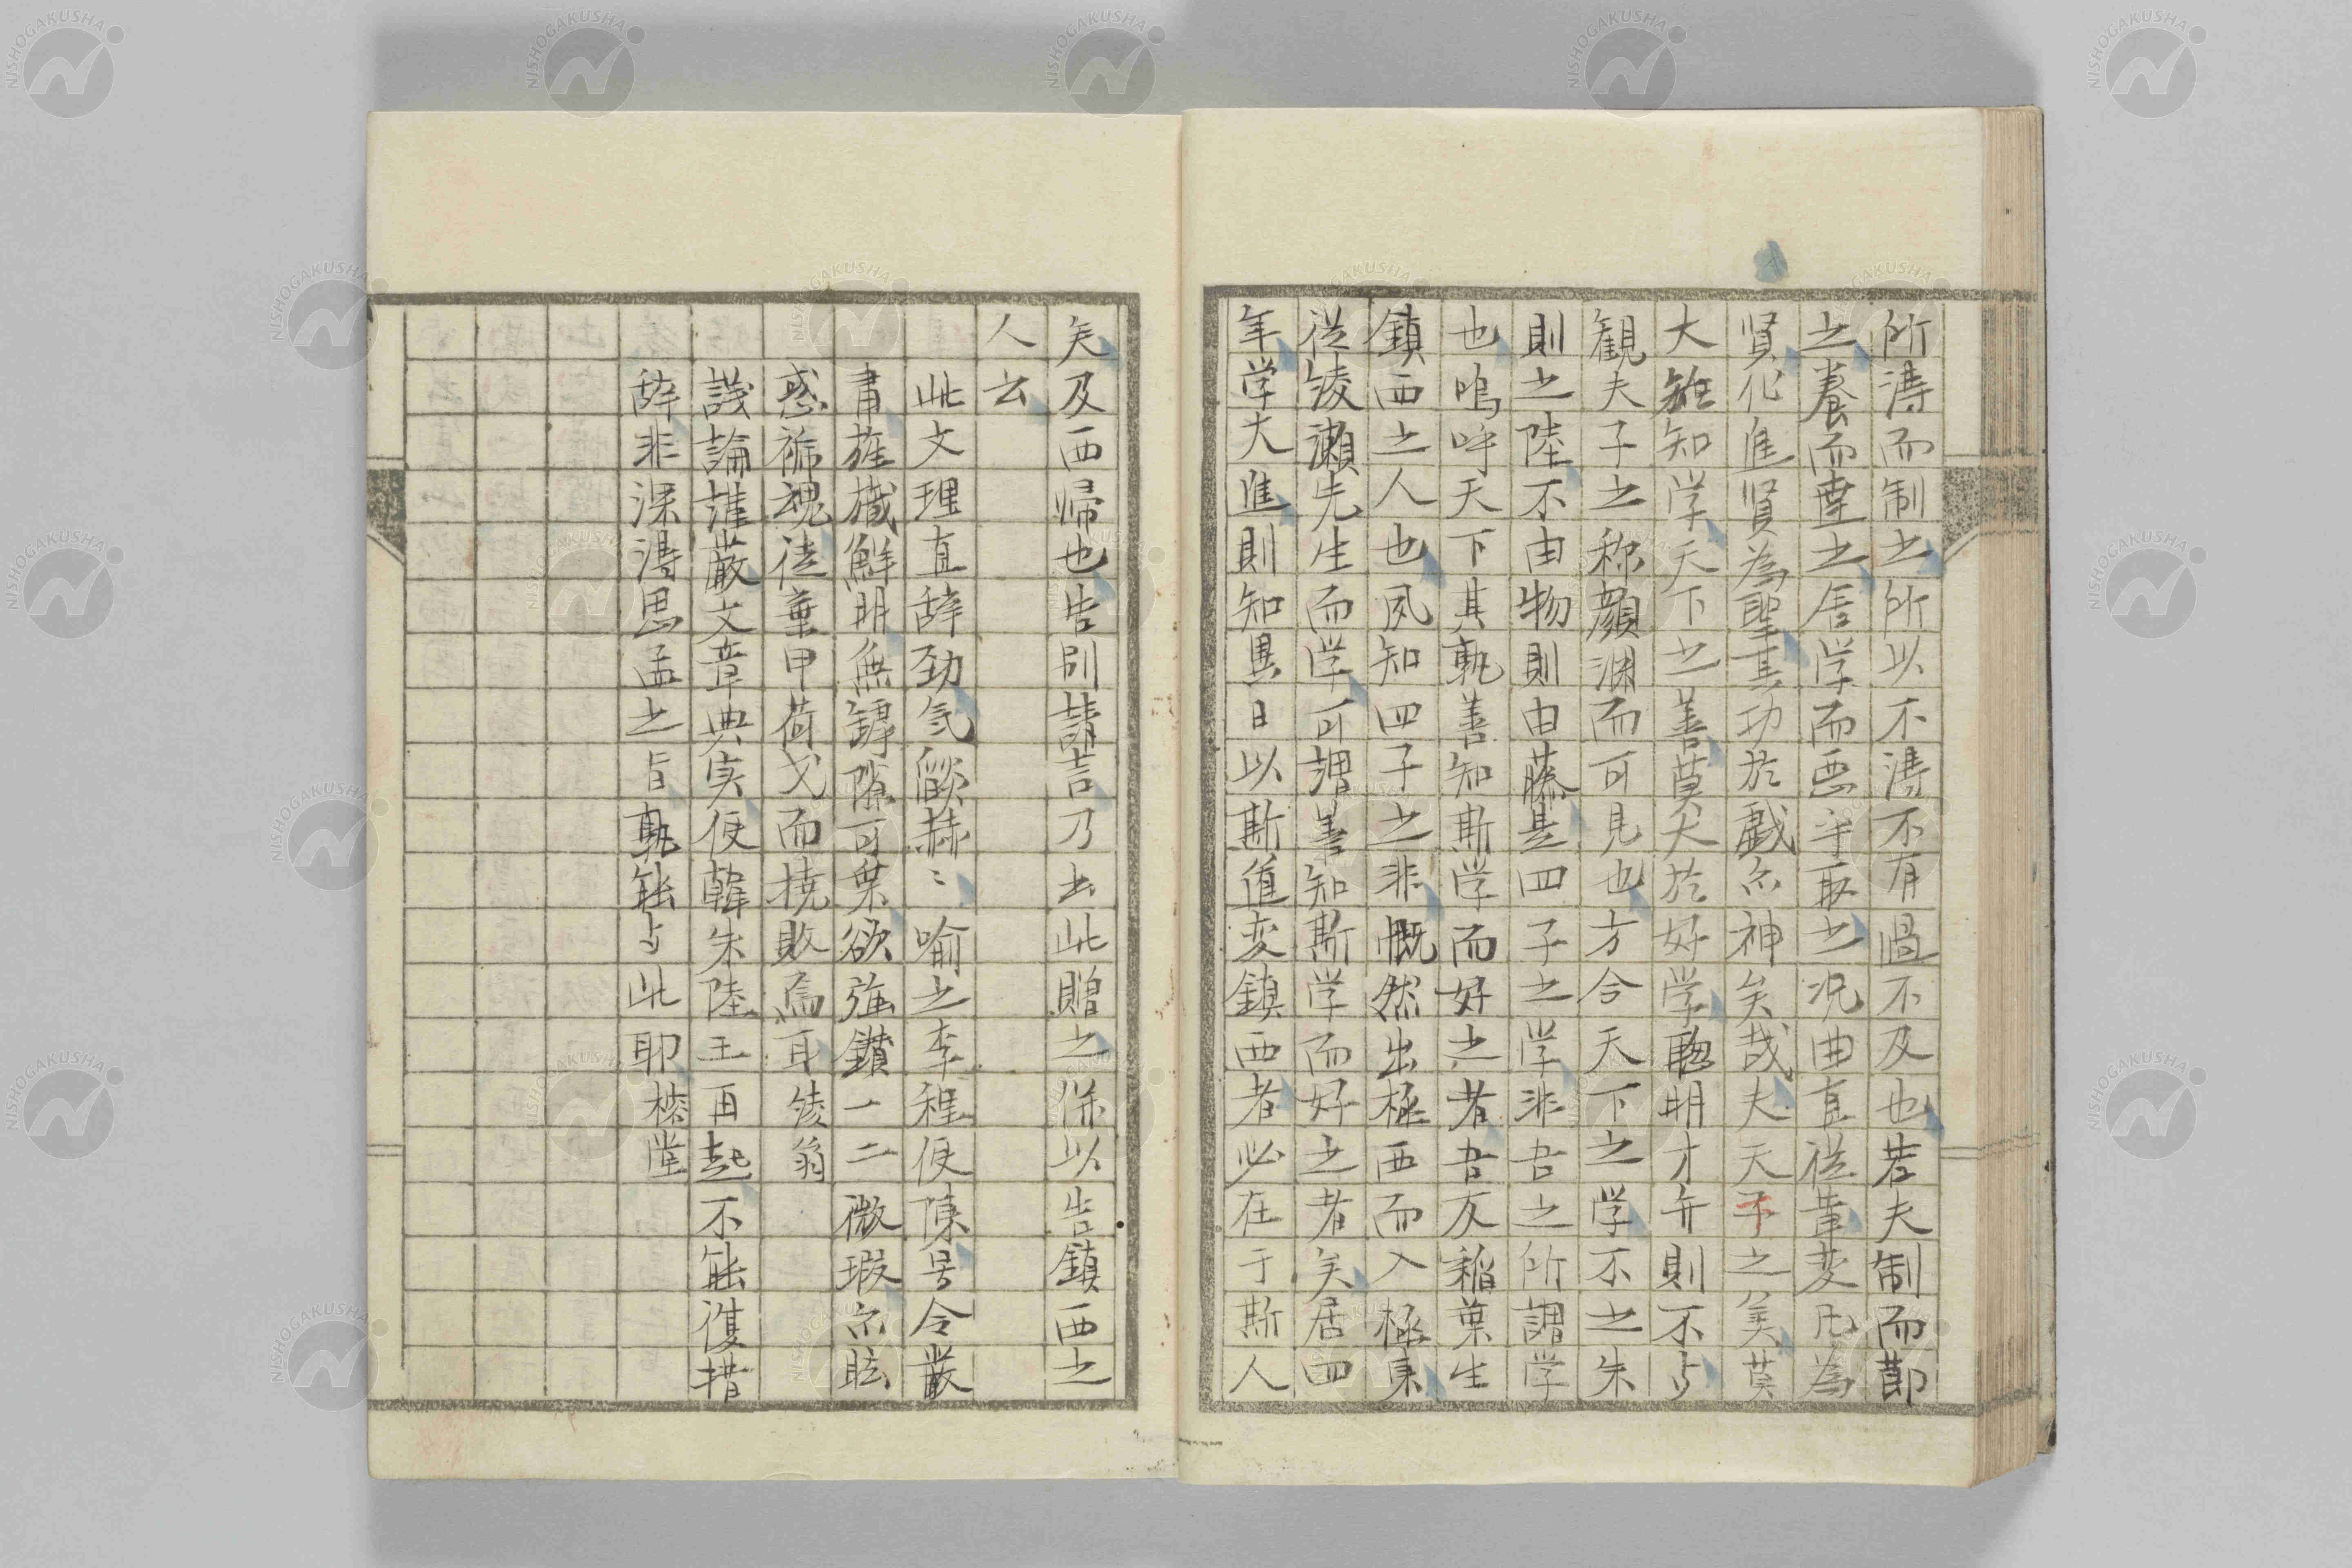 所得而制之所以不得不有過不及也若夫制而節
之養而達之居学而悪乎取之況曲直従革変凡為
賢化進賢為聖其功於戯亦神矣哉夫天予之美莫
大雖知学天下之善莫大於好学聡明才弁則不与
観夫子之称顔淵而可見也方今天下之学不之朱
則之陸不由物則由藤是四子之学非吾之所謂学
也嗚呼天下其孰善知斯学而好之者吾友稲葉生
鎮西之人也夙知四子之非慨然出極西而入極東
従綾瀬先生而学可謂善知斯学而好之者矣居四
年学大進則知異日以斯道変鎮西者必在于斯人
矣及西帰也告別請言乃書此贈之併以告鎮西之
人云
此文理直辞勁気燄赫〻喩之李程使陳号令厳
粛旌幟鮮明無罅隙可乗欲強鑽一二微瑕亦眩
惑褫魂徒棄甲荷戈而撓敗焉耳 綾翁
議論謹厳文章典実使韓朱陸王再起不能復措
辞非深得思孟之旨孰能与此耶